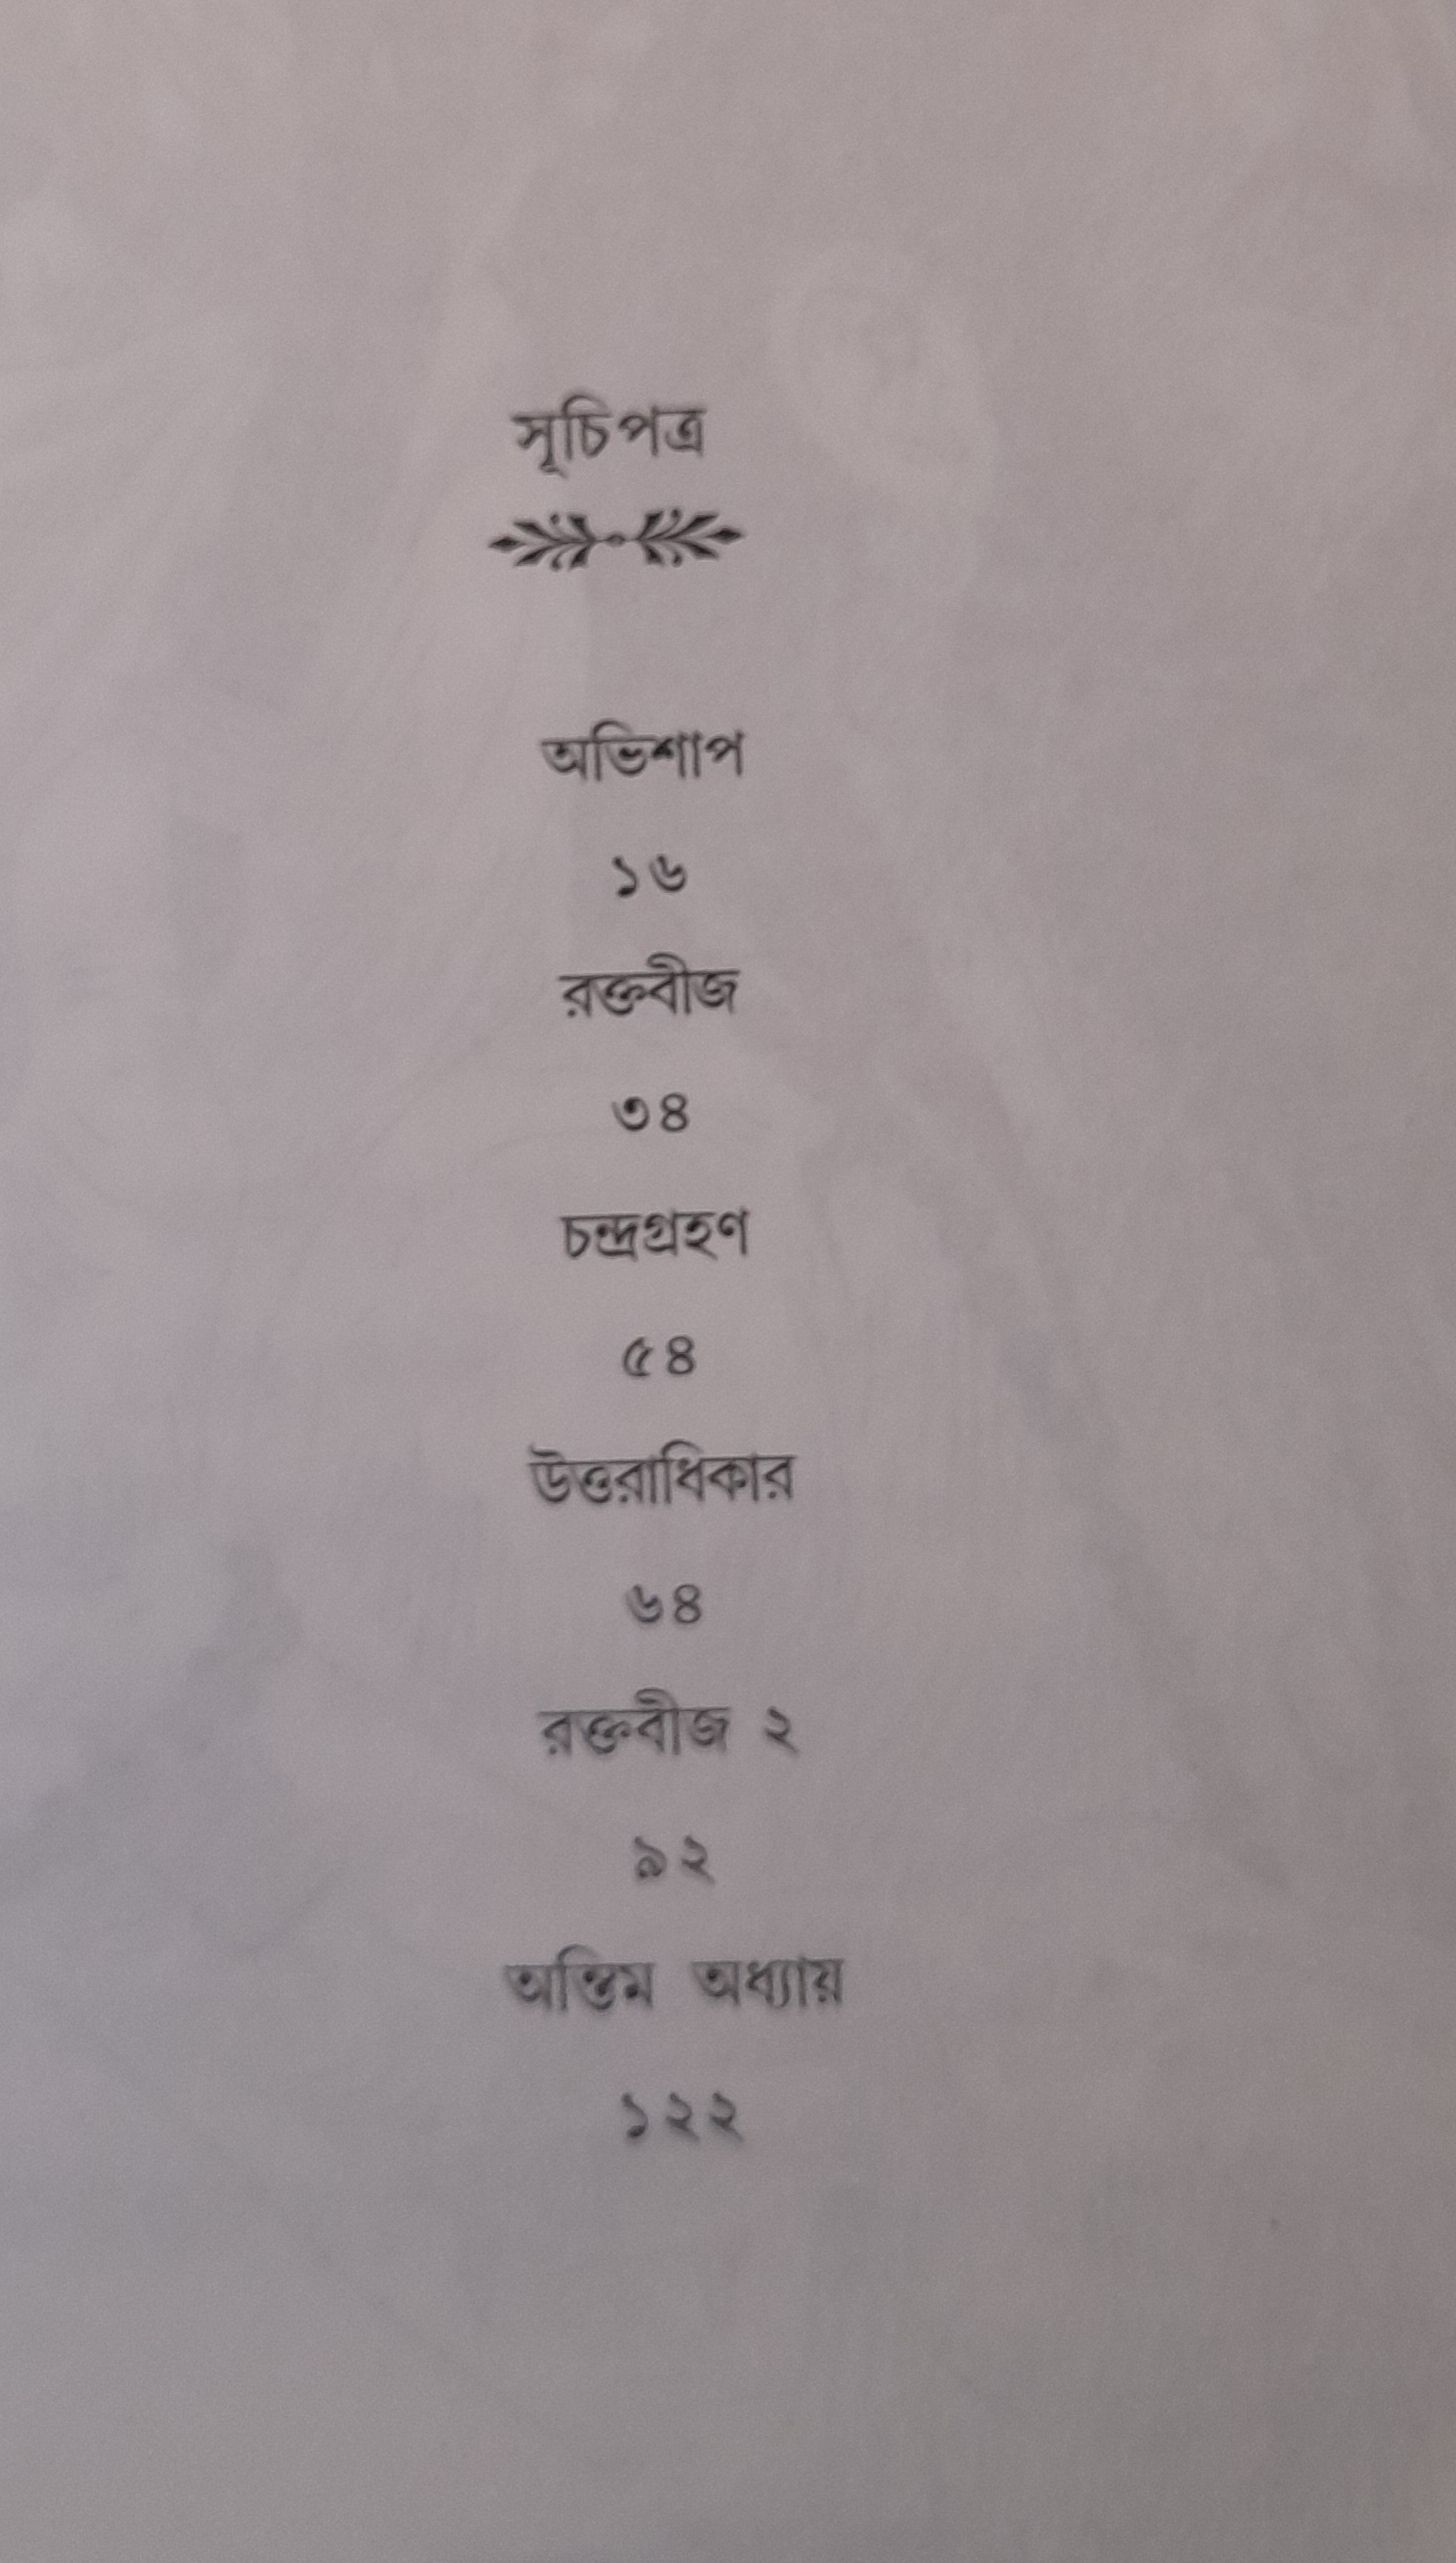 সূচিপত্র
অভিশাপ
১৬
রক্তবীজ
৩৪
চন্দ্রগ্রহণ
৫৪
উত্তরাধিকার
৬৪
রক্তবীজ ২
৯২
অন্তিম অধ্যায়
১২২